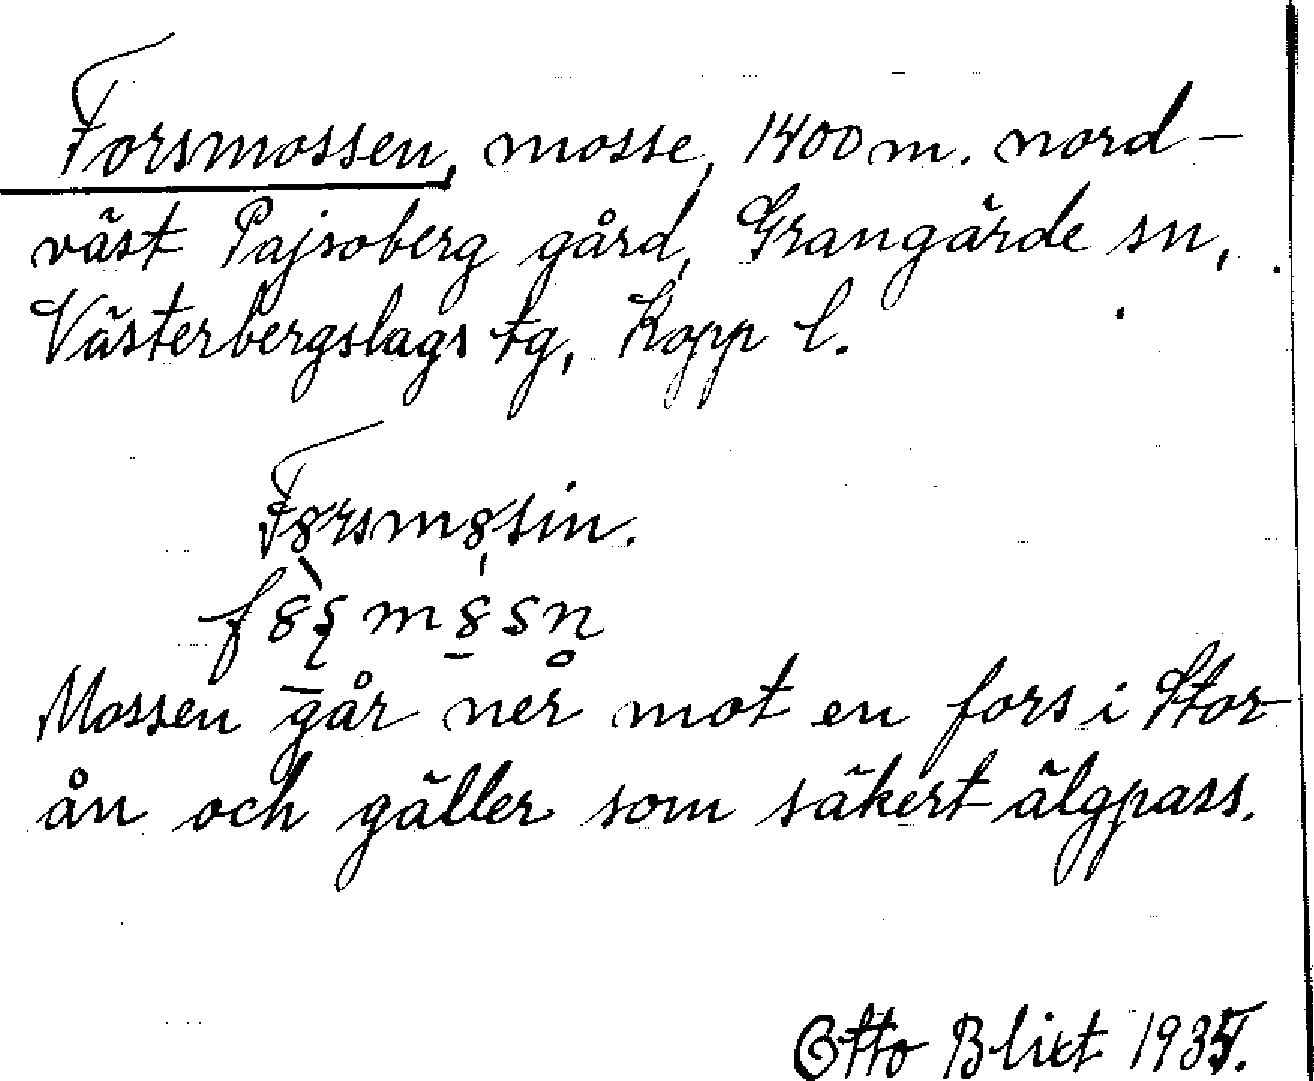 Forsmossen, mosse, 1400 m. nord-
väst Pajsoberg gård, Grangärde sn,
Västerbergslags tg, Kopp l.
Forsmosin.
Mossen går ner mot en fors i Stor-
ån och gäller som säkert älgpass.
Otto Blixt 1935.